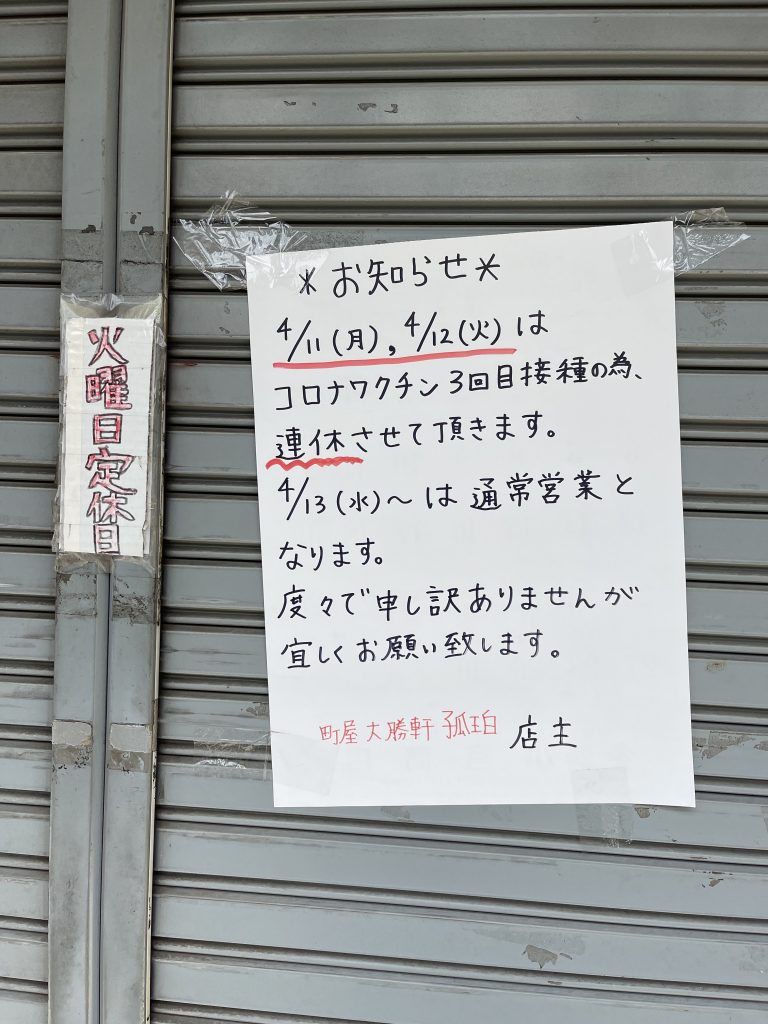 火曜日定休日
*お知らせ*
4/11(月),4/12(火)は
コロナワクチン3回目接種の為、
連休させて頂きます。
4/13(水)～は通常営業と
なります。
度々で申し訳ありませんが
宜しくお願い致します。
町屋大勝軒 孤珀 店主